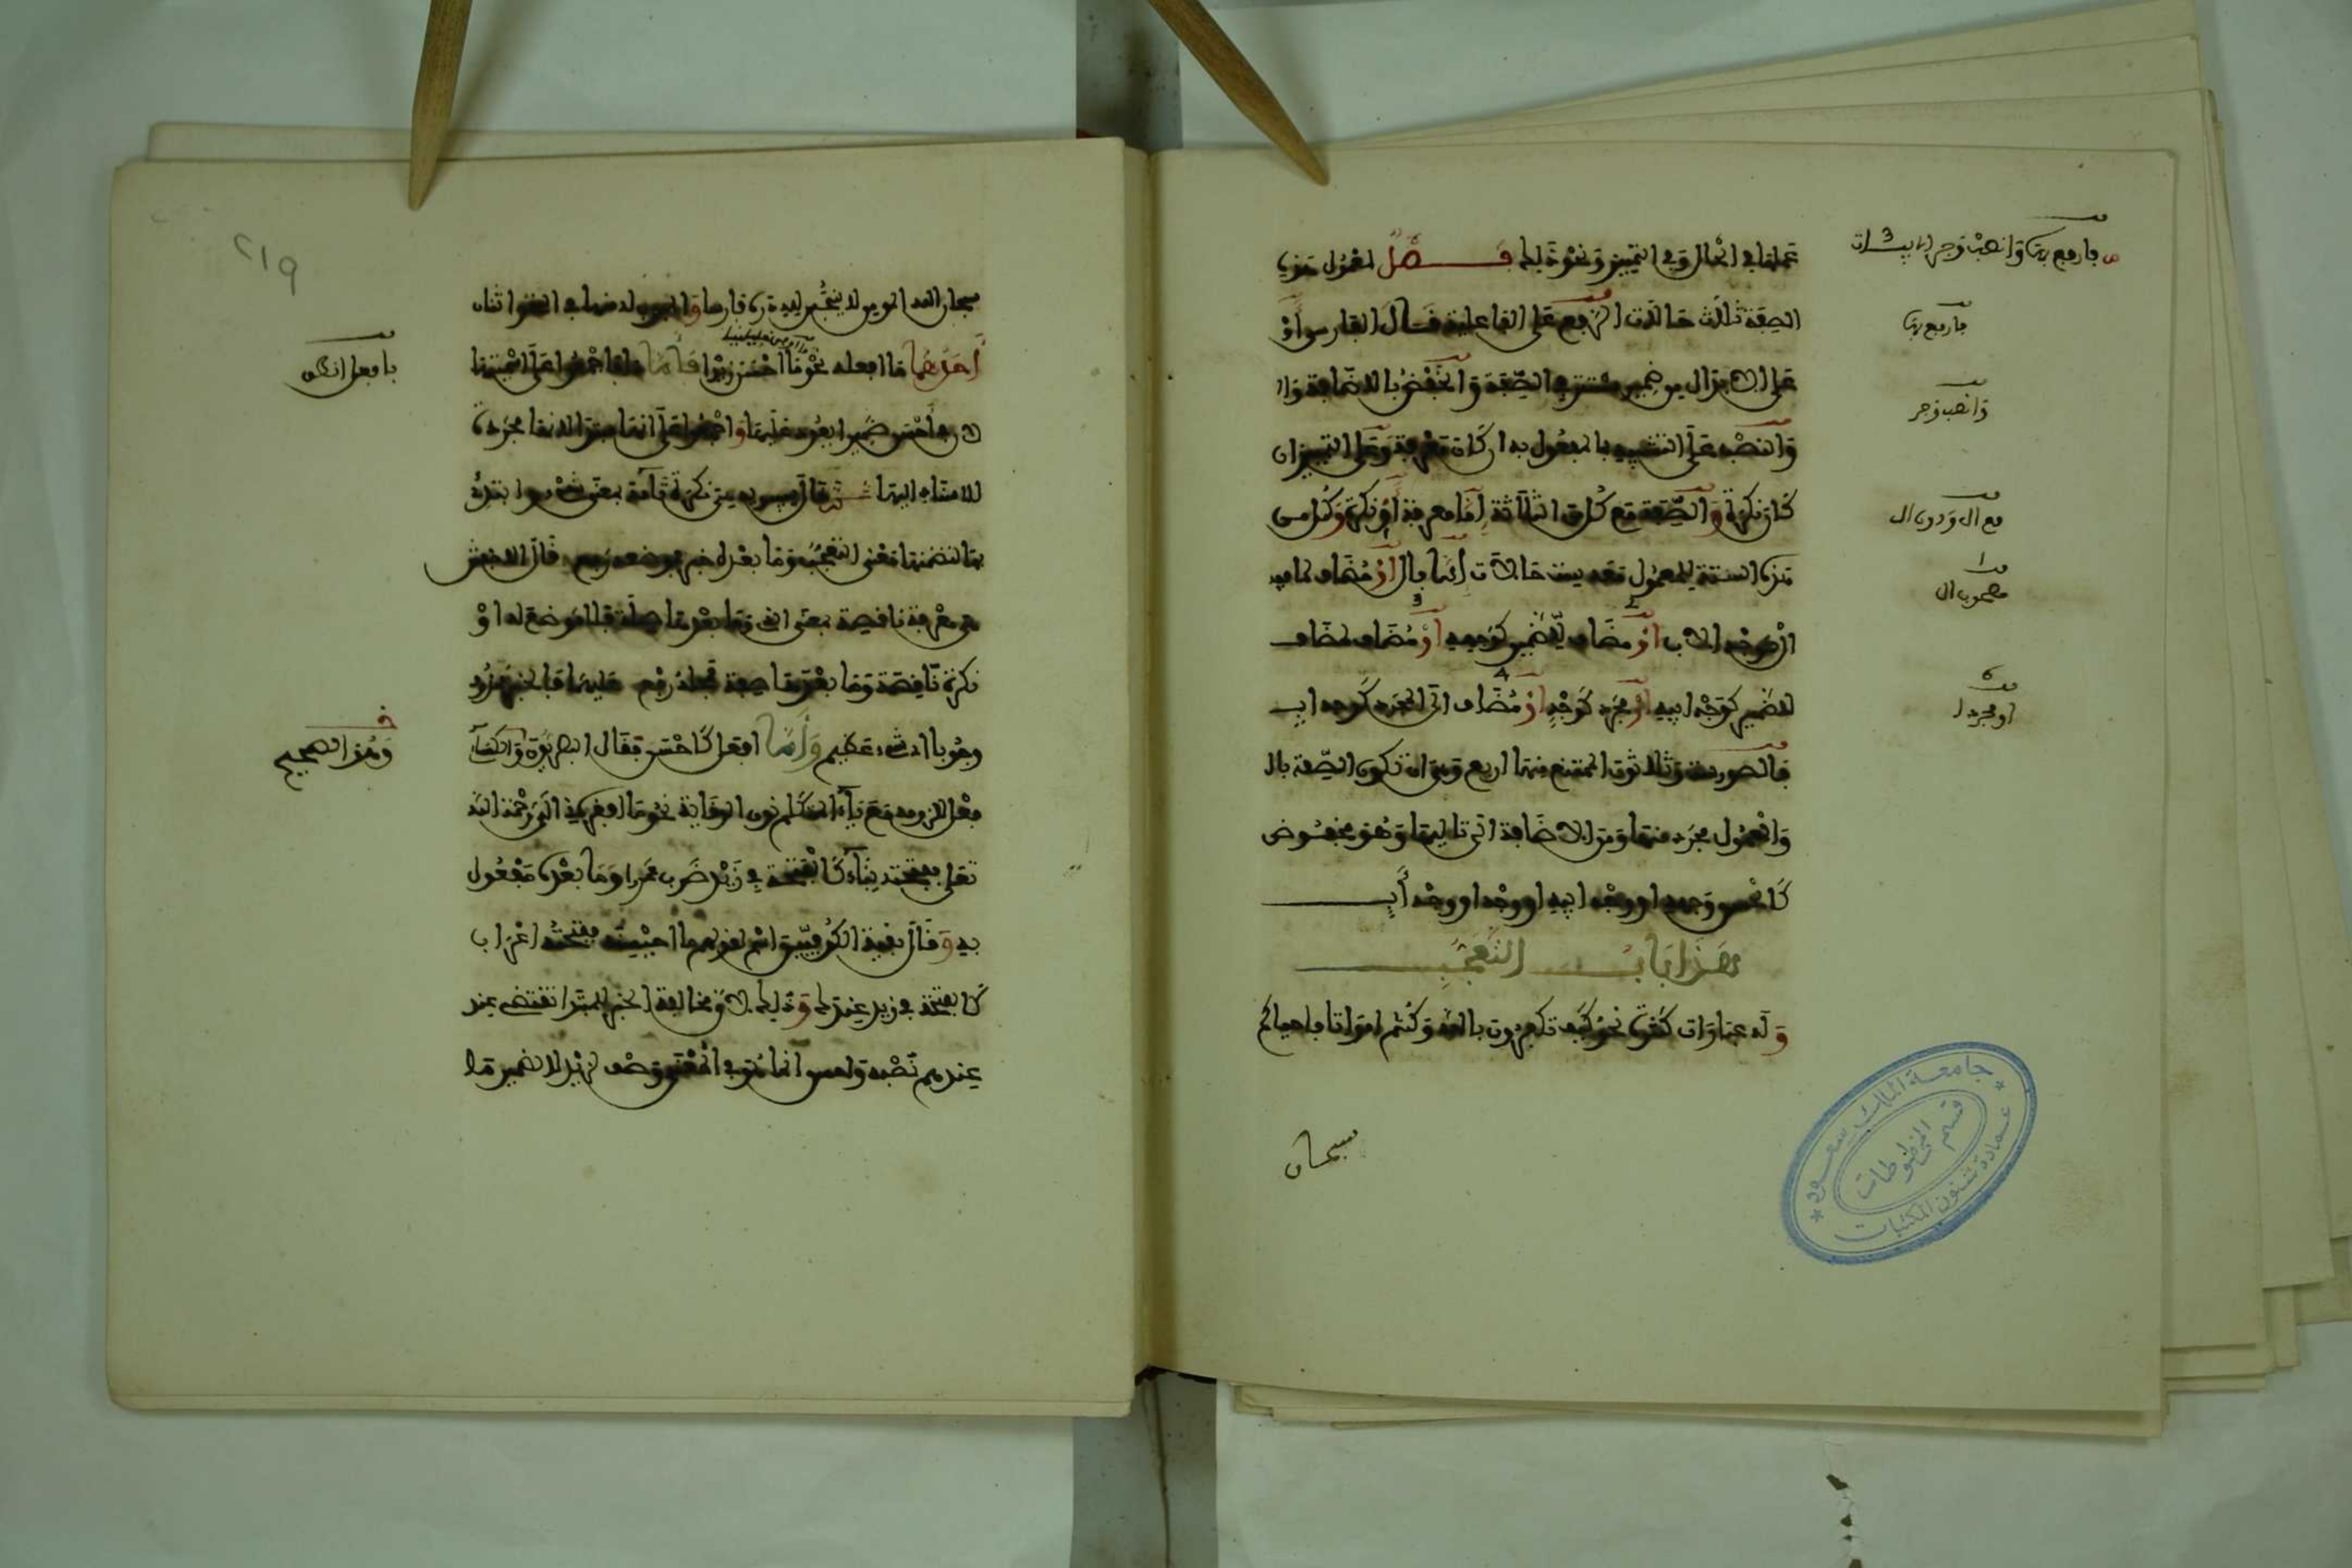 عملها في الحال وفي التمييز ونحو ذلك فصل لمعمول هذه
الصفة ثلاث حالات الرفع على الفاعلية قال الفارسي أو
على الابدال من ضمير مستتر في الصفة والخفض بالاضافة
والنصب على التشبيه بالمفعول به ان كان معرفة وعلى التمييز ان
كان نكرة والصفة مع كل من الثلاثة إما معرفة أو نكرة وكل من
هذه الستة للمعمول معه ست حالات إما بال أو مضاف لما فيه
ال كوجه الاب أو مضاف للضمير كوجهه أو مضاف لمضاف
للضمير كوجه ابيه أو مجرد كوجه أو مضاف الى المجرد كوجه اب
فالصور ست وثلاثون الممتنع منها اربع وهي ان تكون الصفة بال
والمعمول مجرد منها ومن الاضافة الى تاليها وهو مخفوض
كالحسن وجهه او وجه ابيه او وجه او وجه أب
هذا باب التعجب
وله عبارات كثيرة نحو كيف تكفرون بالله وكنتم امواتا فاحياكم
سبحان
فارفع بها وانصب وجر
فارفع بها
وانصب وجر
مع ال ودون ال
مصحوب ال
او مجردا
٢١٩
سبحان الله المومن لا ينجس لله دره فارسا والمبوب له منها في النحو اثنان
أحدهما ما افعله نحو ما احسن زيدا فأما ما فاجمعوا على اسميتها
لان في احسن ضميرا يعود عليها واجمعوا على انها مبتدأ لانها مجردة
للاسناد اليها ثم قال سيبويه هي نكرة تامة بمعنى شيء وابتدئ
بها لتضمنها معنى التعجب وما بعدها خبر فموضعه رفع وقال الاخفش
هي معرفة ناقصة بمعنى الذي وما بعدها صلة فلا موضع له أو
نكرة ناقصة وما بعدها صفة فمحله رفع وعليهما فالخبر محذوف
وجوبا اي شيء عظيم وأما افعل كأحسن فقال البصريون والكسائي
فعل للزومه مع ياء المتكلم نون الوقاية نحو ما افقرني الى رحمة الله
تعلى ففتحته بناء كالفتحة في زيد ضرب عمرا وما بعده مفعول
به وقال بقية الكوفيين اسم لقولهم ما احيسنه ففتحته اعراب
كالفتحة في زيد عندك وذلك لان مخالفة الخبر للمبتدا تقتضي عندهم
عندهم نصبه واحسن انما هو في المعنى وصف لزيد لا لضمير ما
بافعل انطق
وهو الصحيح
جامعة الملك سعود
قسم المخطوطات
عمادة شئون المكتبات